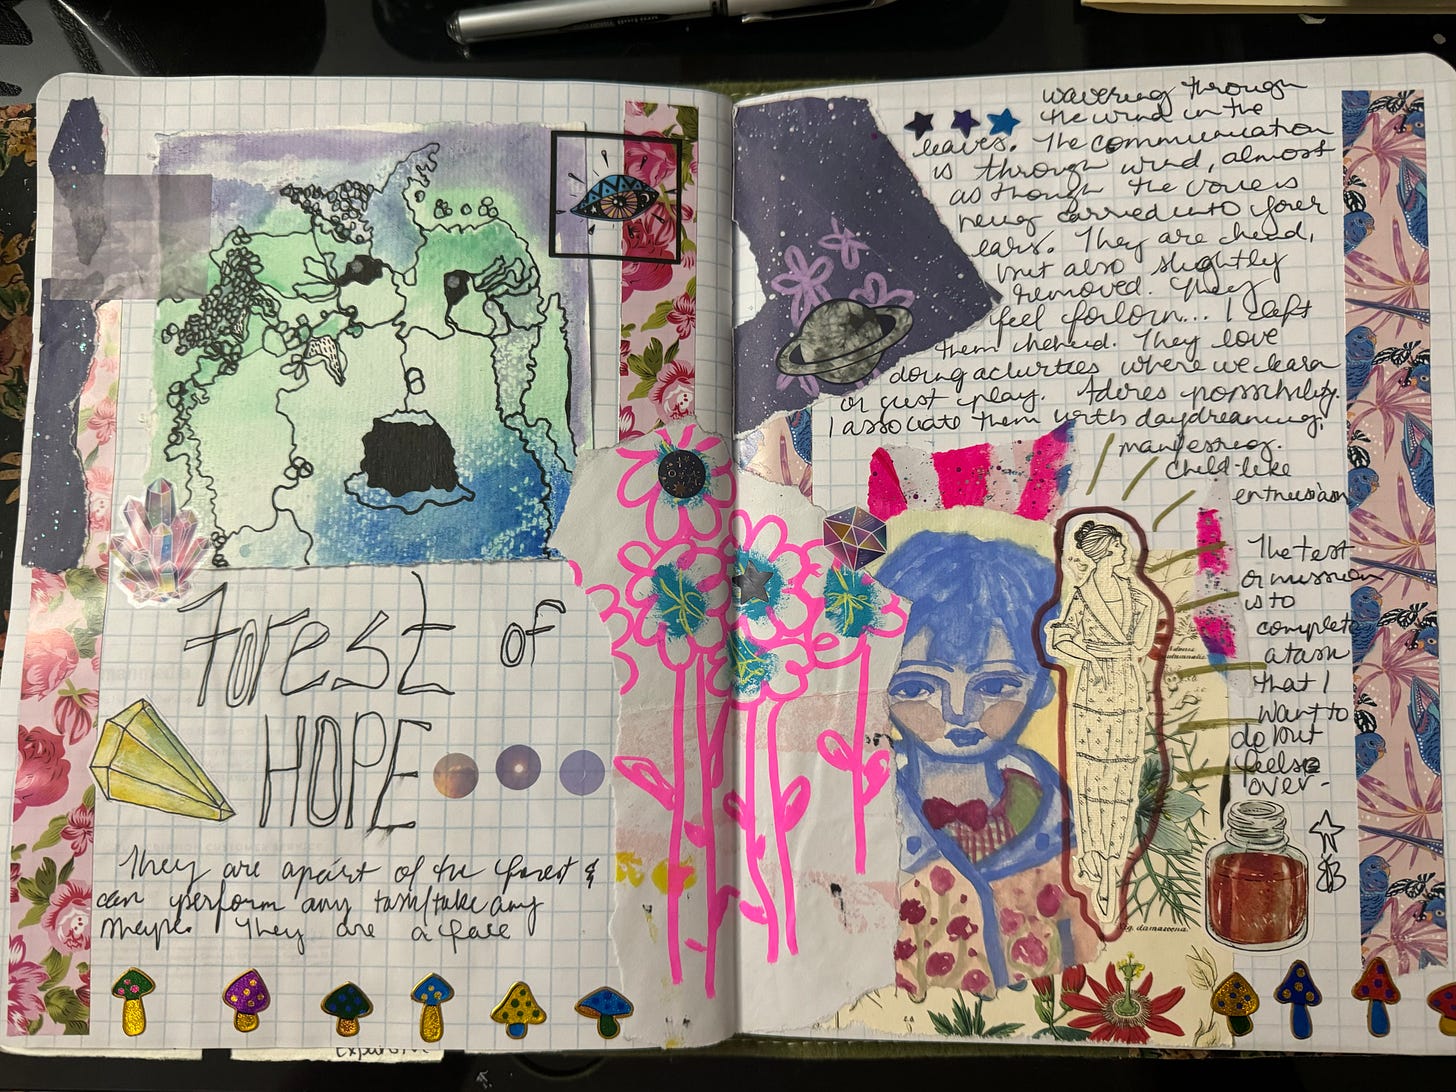 Forest of
HOPE
They are apart of the forest &
can perform any task/take any
shape. They are a face
wavering through
the wind in the
leaves. The communication
is through wind, almost
as though the voice is
being carried into your
ears. They are kind,
but also slightly
removed. They
feel forlorn... I left
them behind. They love
doing activities where we learn
or just play. Adores possibility.
I associate them with daydreaming,
manifesting.
Child-like
enthusiasm
The test
or mission
is to
complete
a task
that I
want to
do but
feels
over-
Adonis
autumnalis
damascena